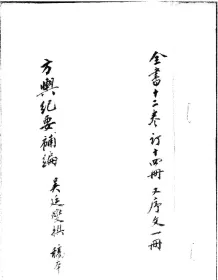 全書十二卷訂十四冊又序文一冊
方輿紀要補編 吳廷燮撰 稿本